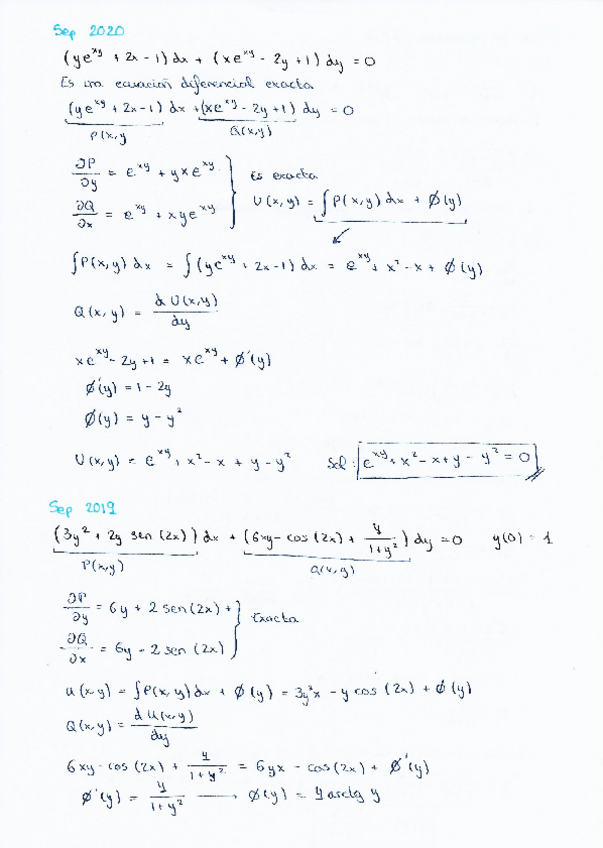 Sep 2020
(ye^xy + 2x - 1) dx + (xe^xy - 2y + 1) dy = 0
Es una ecuación diferencial exacta
(ye^xy + 2x - 1) dx + (xe^xy - 2y + 1) dy = 0
P(x,y Q(x,y)
∂P/∂y = e^xy + yxe^xy
Es exacta
∂Q/∂x = e^xy + xye^xy
U(x,y) = ∫P(x,y) dx + Ø(y)
∫P(x,y) dx = ∫(ye^xy + 2x - 1) dx = e^xy + x² - x + Ø(y)
Q(x,y) = d U(x,y)/dy
xe^xy - 2y + 1 = xe^xy + Ø'(y)
Ø'(y) = 1 - 2y
Ø(y) = y - y²
U(x,y) = e^xy + x² - x + y - y² Sol: e^xy + x² - x + y - y² = 0
Sep 2019
(3y² + 2y sen (2x)) dx + (6xy - cos (2x) + y/1+y²) dy = 0 y(0) = 1
P(x,y) Q(x,y)
∂P/∂y = 6y + 2 sen(2x) +
Exacta
∂Q/∂x = 6y - 2 sen (2x)
U(x,y) = ∫P(x,y) dx + Ø(y) = 3y²x - y cos (2x) + Ø(y)
Q(x,y) = d U(x,y)/dy
6xy - cos (2x) + y/1+y² = 6yx - cos(2x) + Ø'(y)
Ø'(y) = y/1+y² → Ø(y) = y arctg y